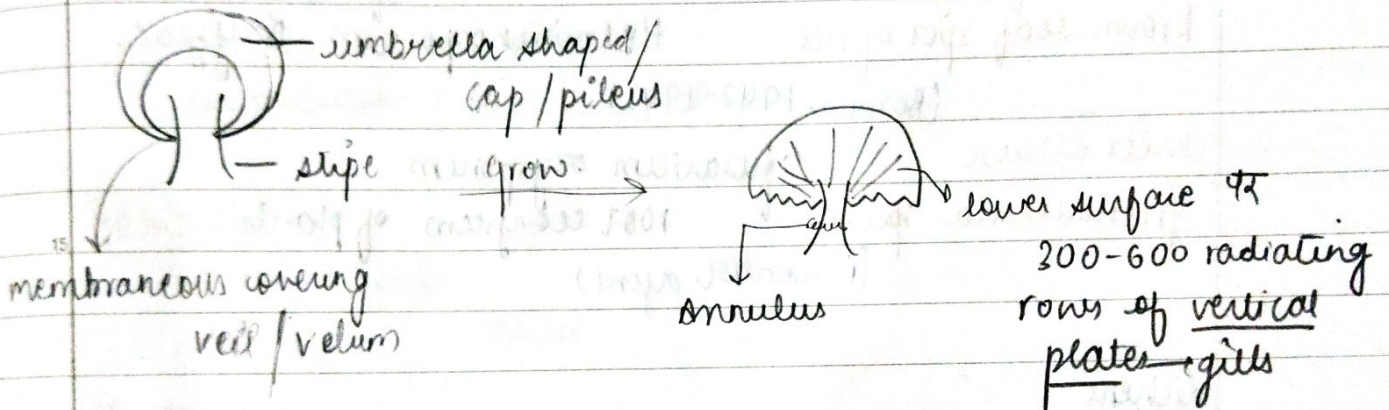 umbrella shaped/
cap/pileus
stipe
grow
membraneous covering
veil/velum
annulus
lower surface पर
300-600 radiating
rows of vertical
plates→gills
15